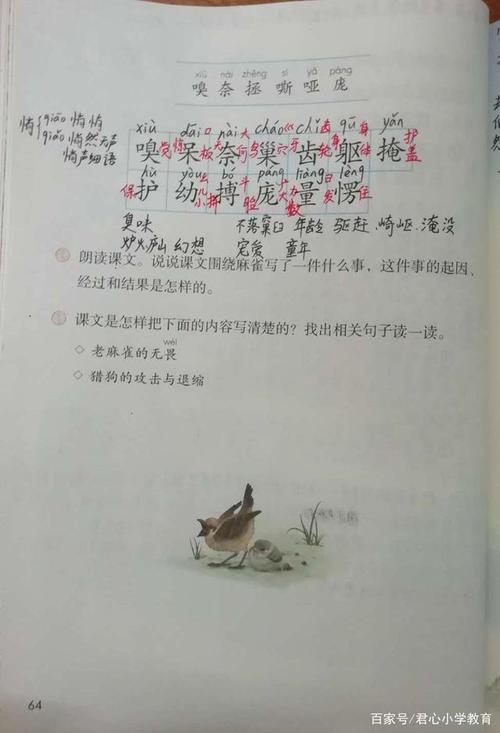 xiù nài zhěng sī yǎ páng
嗅 奈 拯 嘶 哑 庞
悄 qiāo 悄悄
qiǎo 悄然无声
悄声细语
xiù dāi nài cháo chǐ qū yǎn
嗅 呆 奈 巢 齿 躯 掩
hù yòu bó páng liàng lèng
护 幼 搏 庞 量 愣
臭味 不落窠臼 年龄 驱赶、崎岖、淹没
炉火、庐山 幻想 宠爱 童年
朗读课文。说说课文围绕麻雀写了一件什么事，这件事的起因、
经过和结果是怎样的。
课文是怎样把下面的内容写清楚的？找出相关句子读一读。
wèi
◇ 老麻雀的无畏
◇ 猎狗的攻击与退缩
64
百家号/君心小学教育